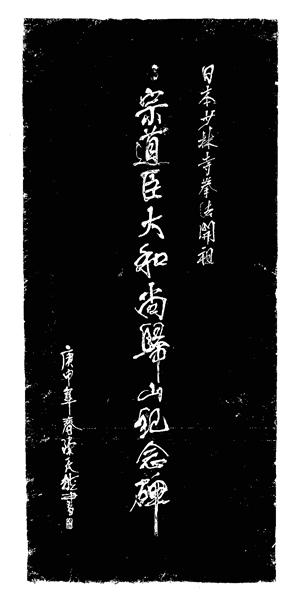 日本少林寺拳法開祖
宗道臣大和尚歸山紀念碑
庚申年春